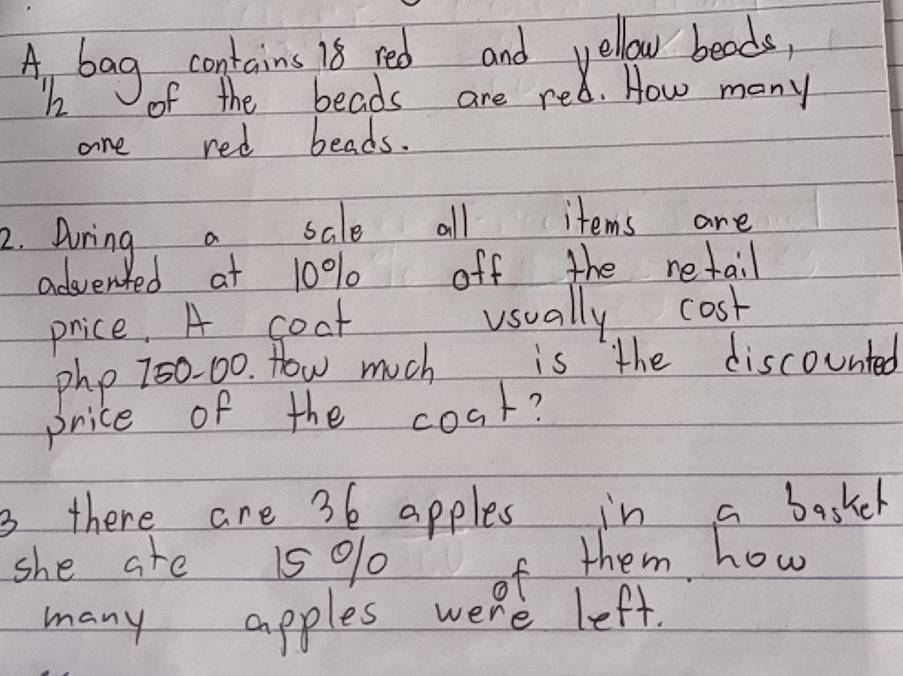 A bag contains 18 red and yellow beads,
1/2 of the beads are red. How many
are red beads.
2. During a sale all items are
adverted at 10% off the retail
price. A coat usually cost
php 750-00. How much is the discounted
price of the coat?
3 there are 36 apples in a basket
she ate 15% of them. how
many apples were left.